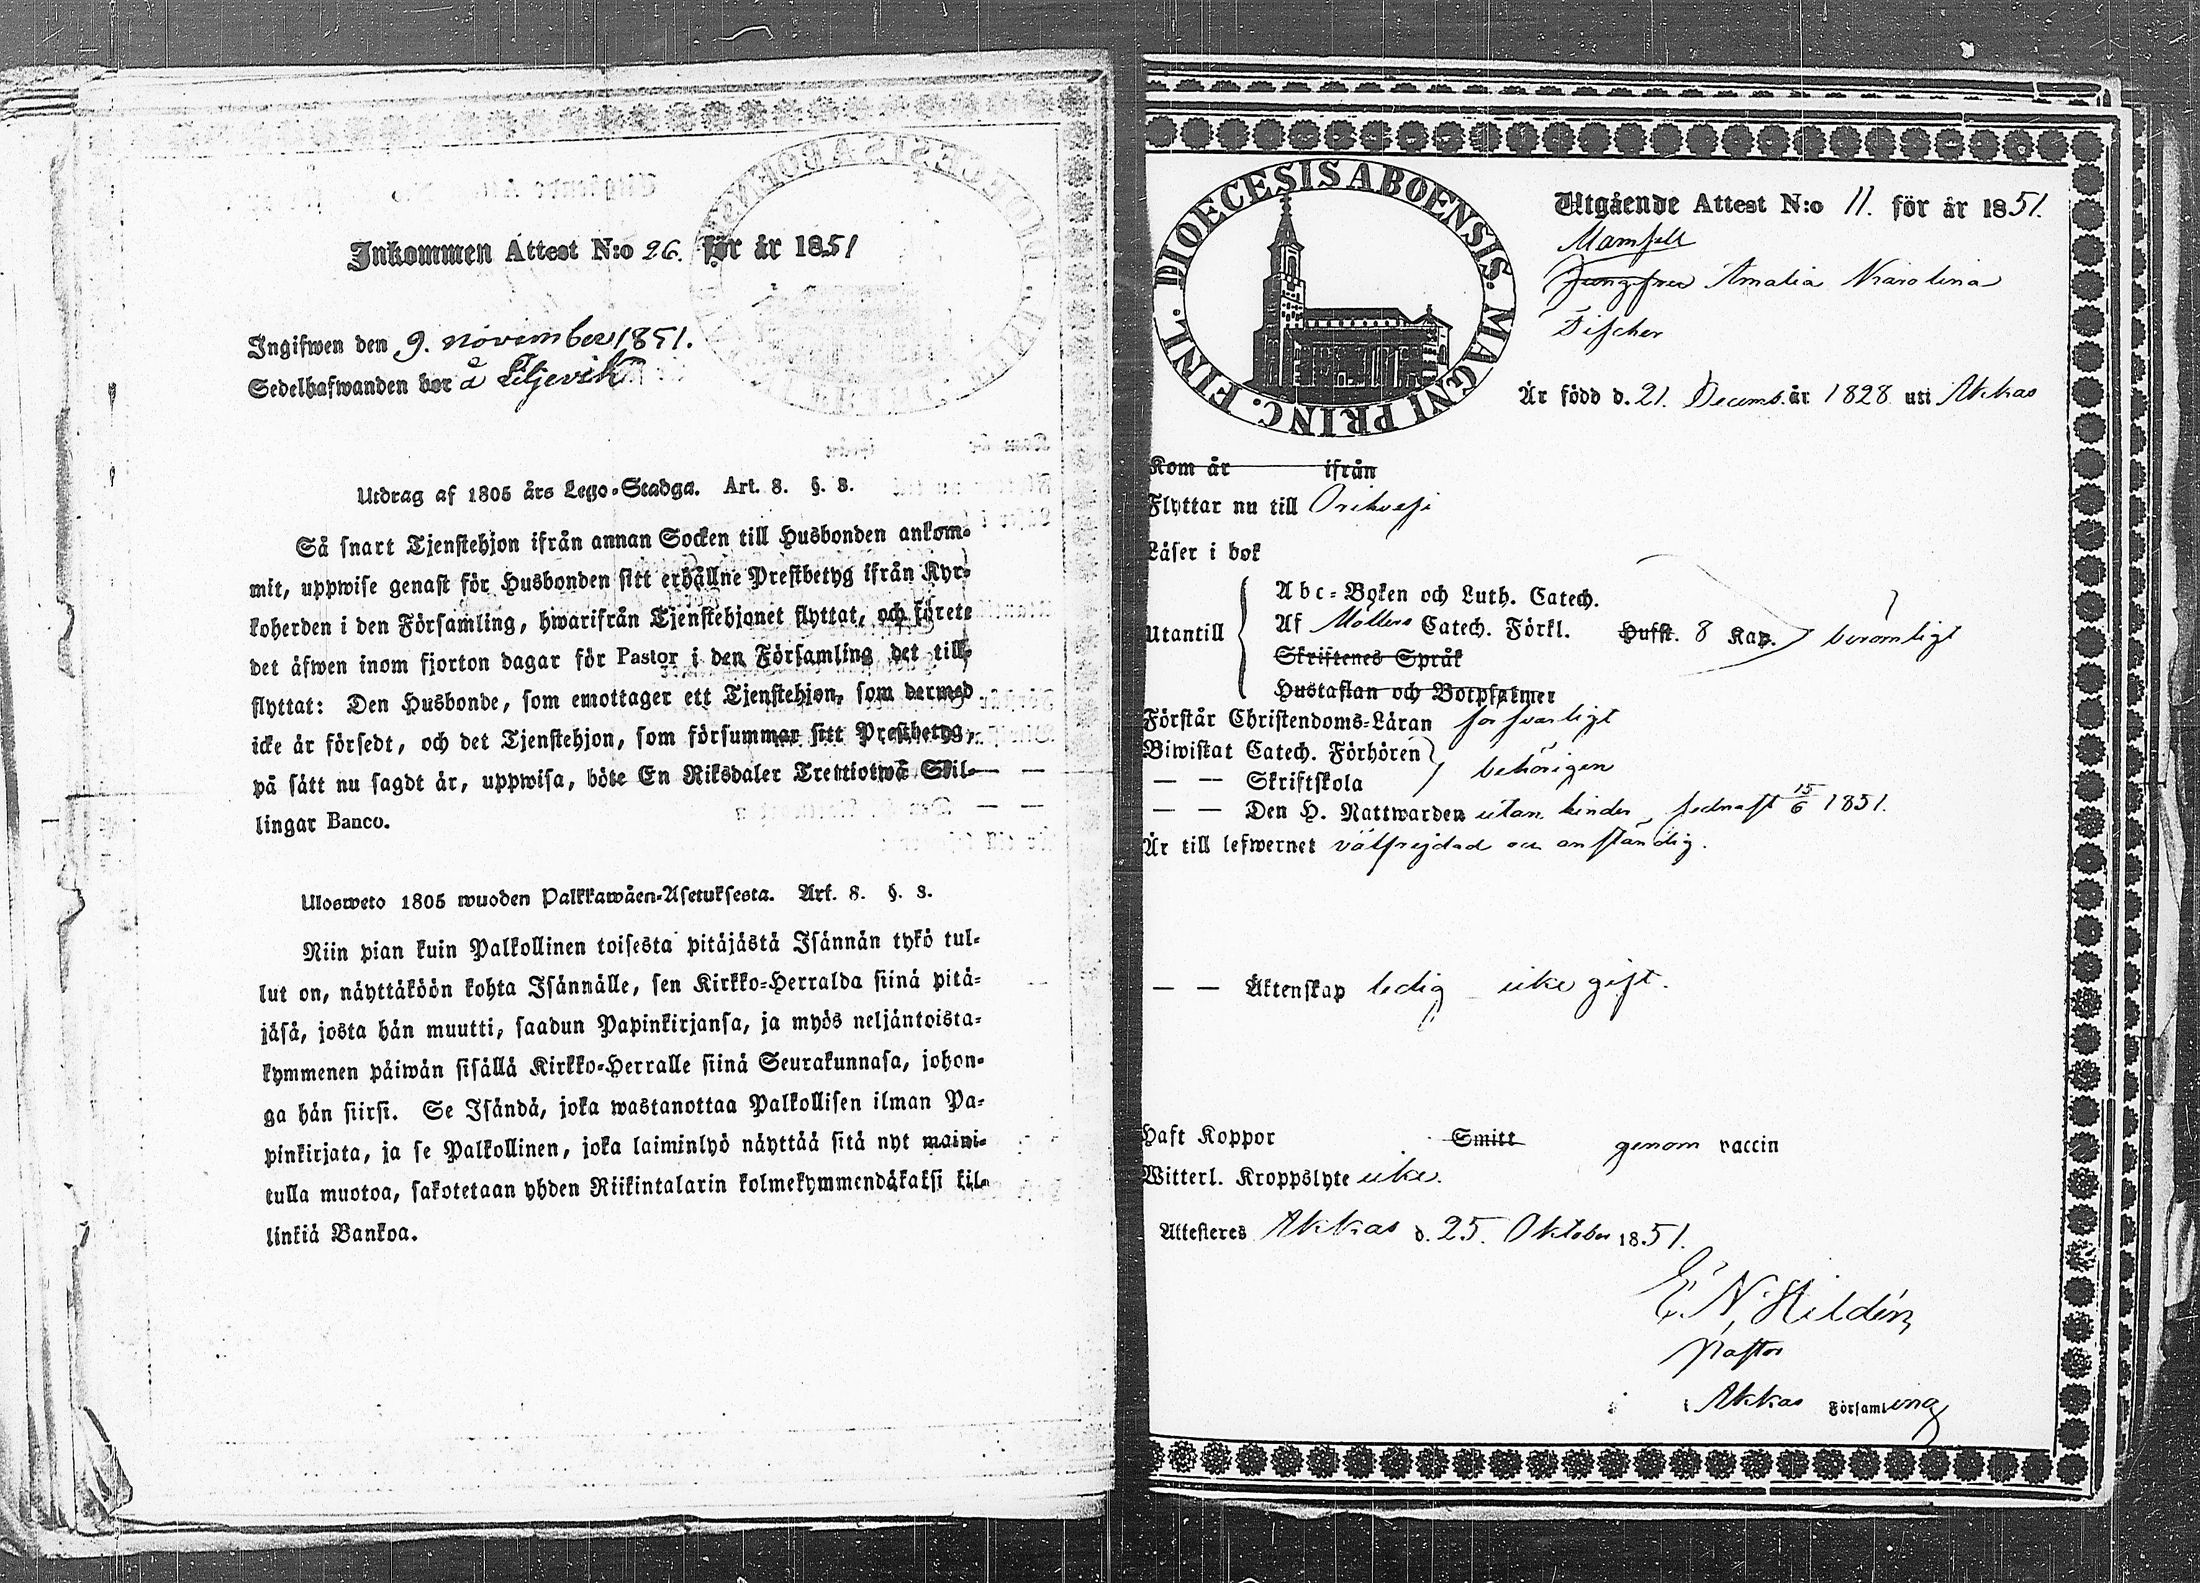 Inkommen Attest N:o 26. för år 1851
Ingifwen den 9. november 1851.
Sedelhafwanden bor å Liljevik
Utdrag af 1805 års Lego-Stadga. Art. 8. §. 8.
Så snart Tjenstehjon ifrån annan Socken till Husbonden ankom-
mit, uppwise genast för Husbonden sitt erhållne Prestbetyg ifrån Kyr-
koherden i den Församling, hwarifrån Tjenstehjonet flyttat, och förete
det äfwen inom fjorton dagar för Pastor i den Församling det till-
flyttat: Den Husbonde, som emottager ett Tjenstehjon, som dermed
icke är försedt, och det Tjenstehjon, som försummar sitt Prestbetyg,
på sätt nu sagdt är, uppwisa, böte En Riksdaler Trettiotwå Skil-
lingar Banco.
Ulosweto 1805 wuoden Palkkawäen-Asetuksesta. Art. 8. §. 8.
Niin pian kuin Palkollinen toisesta pitäjästä Isännän tykö tul-
lut on, näyttäköön kohta Isännälle, sen Kirkko-Herralda siinä pitä-
jäsä, josta hän muutti, saadun Papinkirjansa, ja myös neljäntoista-
kymmenen päiwän sisällä Kirkko-Herralle siinä Seurakunnasa, johon-
ga hän siirsi. Se Isändä, joka wastanottaa Palkollisen ilman Pa-
pinkirjata, ja se Palkollinen, joka laiminlyö näyttää sitä nyt maini-
tulla muotoa, sakotetaan yhden Riikintalarin kolmekymmendäkaksi kil-
linkiä Bankoa.
DIOECESIS ABOENSIS. MAGNI PRINC. FINL.
Utgående Attest N:o 11. för år 1851.
Mamsell
Jungfrun Amalia Karolina
Fischer
Är född d. 21. Decemb. år 1828 uti Akkas
Kom år ifrån
Flyttar nu till Orihvesi
Läser i bok
Utantill
Abc-Boken och Luth. Catech.
Af Möllers Catech. Förkl. Husst. 8 Kap. berömligt
Skriftenes Språk
Hustaflan och Botpsalmer
Förstår Christendoms-Läran forsvarligt
Biwistat Catech. Förhören
— — Skriftskola behörigen
— — Den H. Nattwarden utan hinder, sednast 15/6 1851.
Är till lefwernet välfrejdad och anständig.
— — Äktenskap ledig icke gift.
Haft Koppor Smitt genom vaccin
Witterl. Kroppslyte icke.
Attesteres Akkas d. 25. Oktober 1851.
E. N. Hildén
Pastor
i Akkas Församling